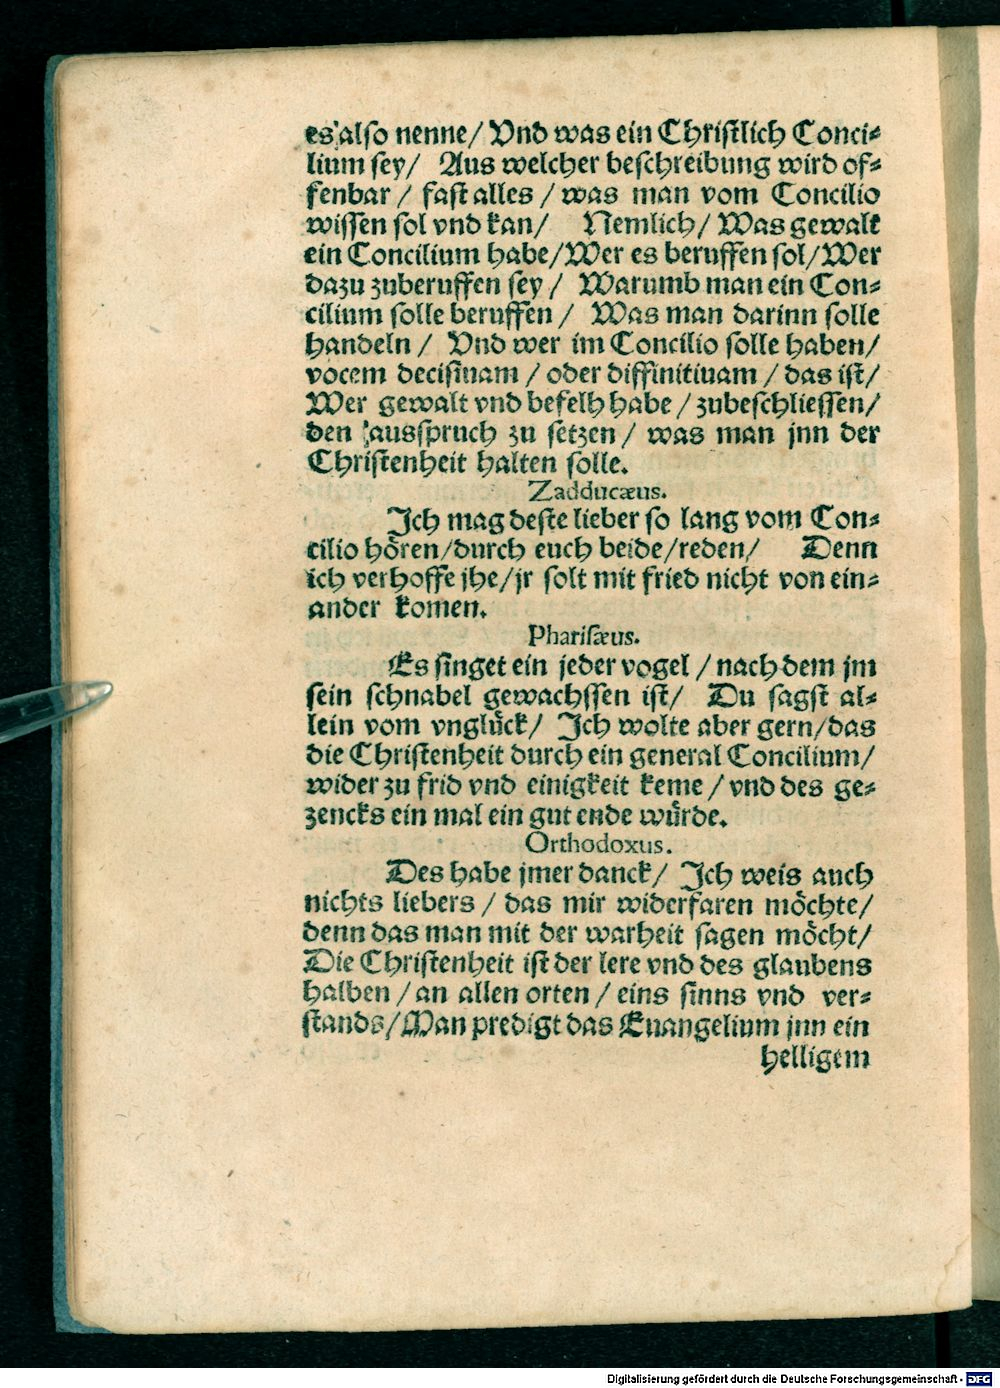 es also nenne/ Vnd was ein Christlich Conci⸗
lium sey/ Aus welcher beschreibung wird of⸗
fenbar / fast alles / was man vom Concilio
wissen sol vnd kan/ Nemlich/ Was gewalt
ein Concilium habe/Wer es beruffen sol/Wer
dazu zuberuffen sey / Warumb man ein Con⸗
cilium solle beruffen / Was man darinn solle
handeln / Vnd wer im Concilio solle haben/
vocem decisiuam / oder diffinitiuam / das ist/
Wer gewalt vnd befelh habe / zubeschliessen/
den ausspruch zu setzen / was man jnn der
Christenheit halten solle.
Zadducæus.
Ich mag deste lieber so lang vom Con⸗
cilio hören/durch euch beide/reden/ Denn
ich verhoffe jhe/jr solt mit fried nicht von ein⸗
ander komen.
Phariſæus.
Es singet ein jeder vogel / nach dem jm
sein schnabel gewachssen ist/ Du sagst al⸗
lein vom vnglück/ Ich wolte aber gern/das
die Christenheit durch ein general Concilium/
wider zu frid vnd einigkeit keme / vnd des ge⸗
zencks ein mal ein gut ende würde.
Orthodoxus.
Des habe jmer danck/ Ich weis auch
nichts liebers / das mir widerfaren möchte/
denn das man mit der warheit sagen möcht/
Die Christenheit ist der lere vnd des glaubens
halben / an allen orten / eins sinns vnd ver⸗
stands/Man predigt das Euangelium jnn ein
helligem
Digitalisierung gefördert durch die Deutsche Forschungsgemeinschaft - DFG